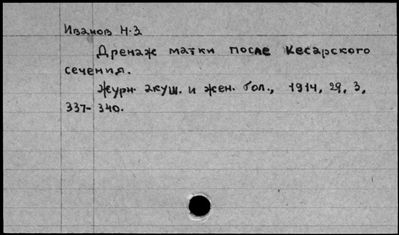 Иванов Н.З.
Дренаж матки после Кесарского
сечения.
Журн. акуш. и жен. бол., 1914, 29, 3,
337-340.